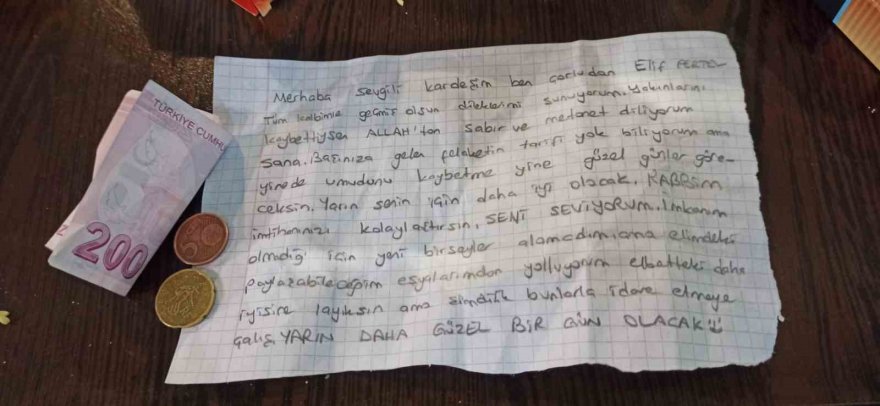 Merhaba sevgili kardeşim ben Çorludan Elif
Tüm kalbimle geçmiş olsun dileklerimi sunuyorum. Yakınlarını
kaybettiysen ALLAH'tan sabır ve metanet diliyorum
sana. Başınıza gelen felaketin tarifi yok biliyorum ama
yinede umudunu kaybetme yine güzel günler göre-
ceksin. Yarın senin için daha iyi olacak. RABBİM
imtihanınızı kolaylaştırsın, SENİ SEVİYORUM. İmkanım
olmadığı için yeni birşeyler alamadım ama elimdeki
paylaşabileceğim eşyalarımdan yolluyorum elbetteki daha
iyisine layıksın ama şimdilik bunlarla idare etmeye
çalış YARIN DAHA GÜZEL BİR GÜN OLACAK
TÜRKİYE CUMHU
200
5